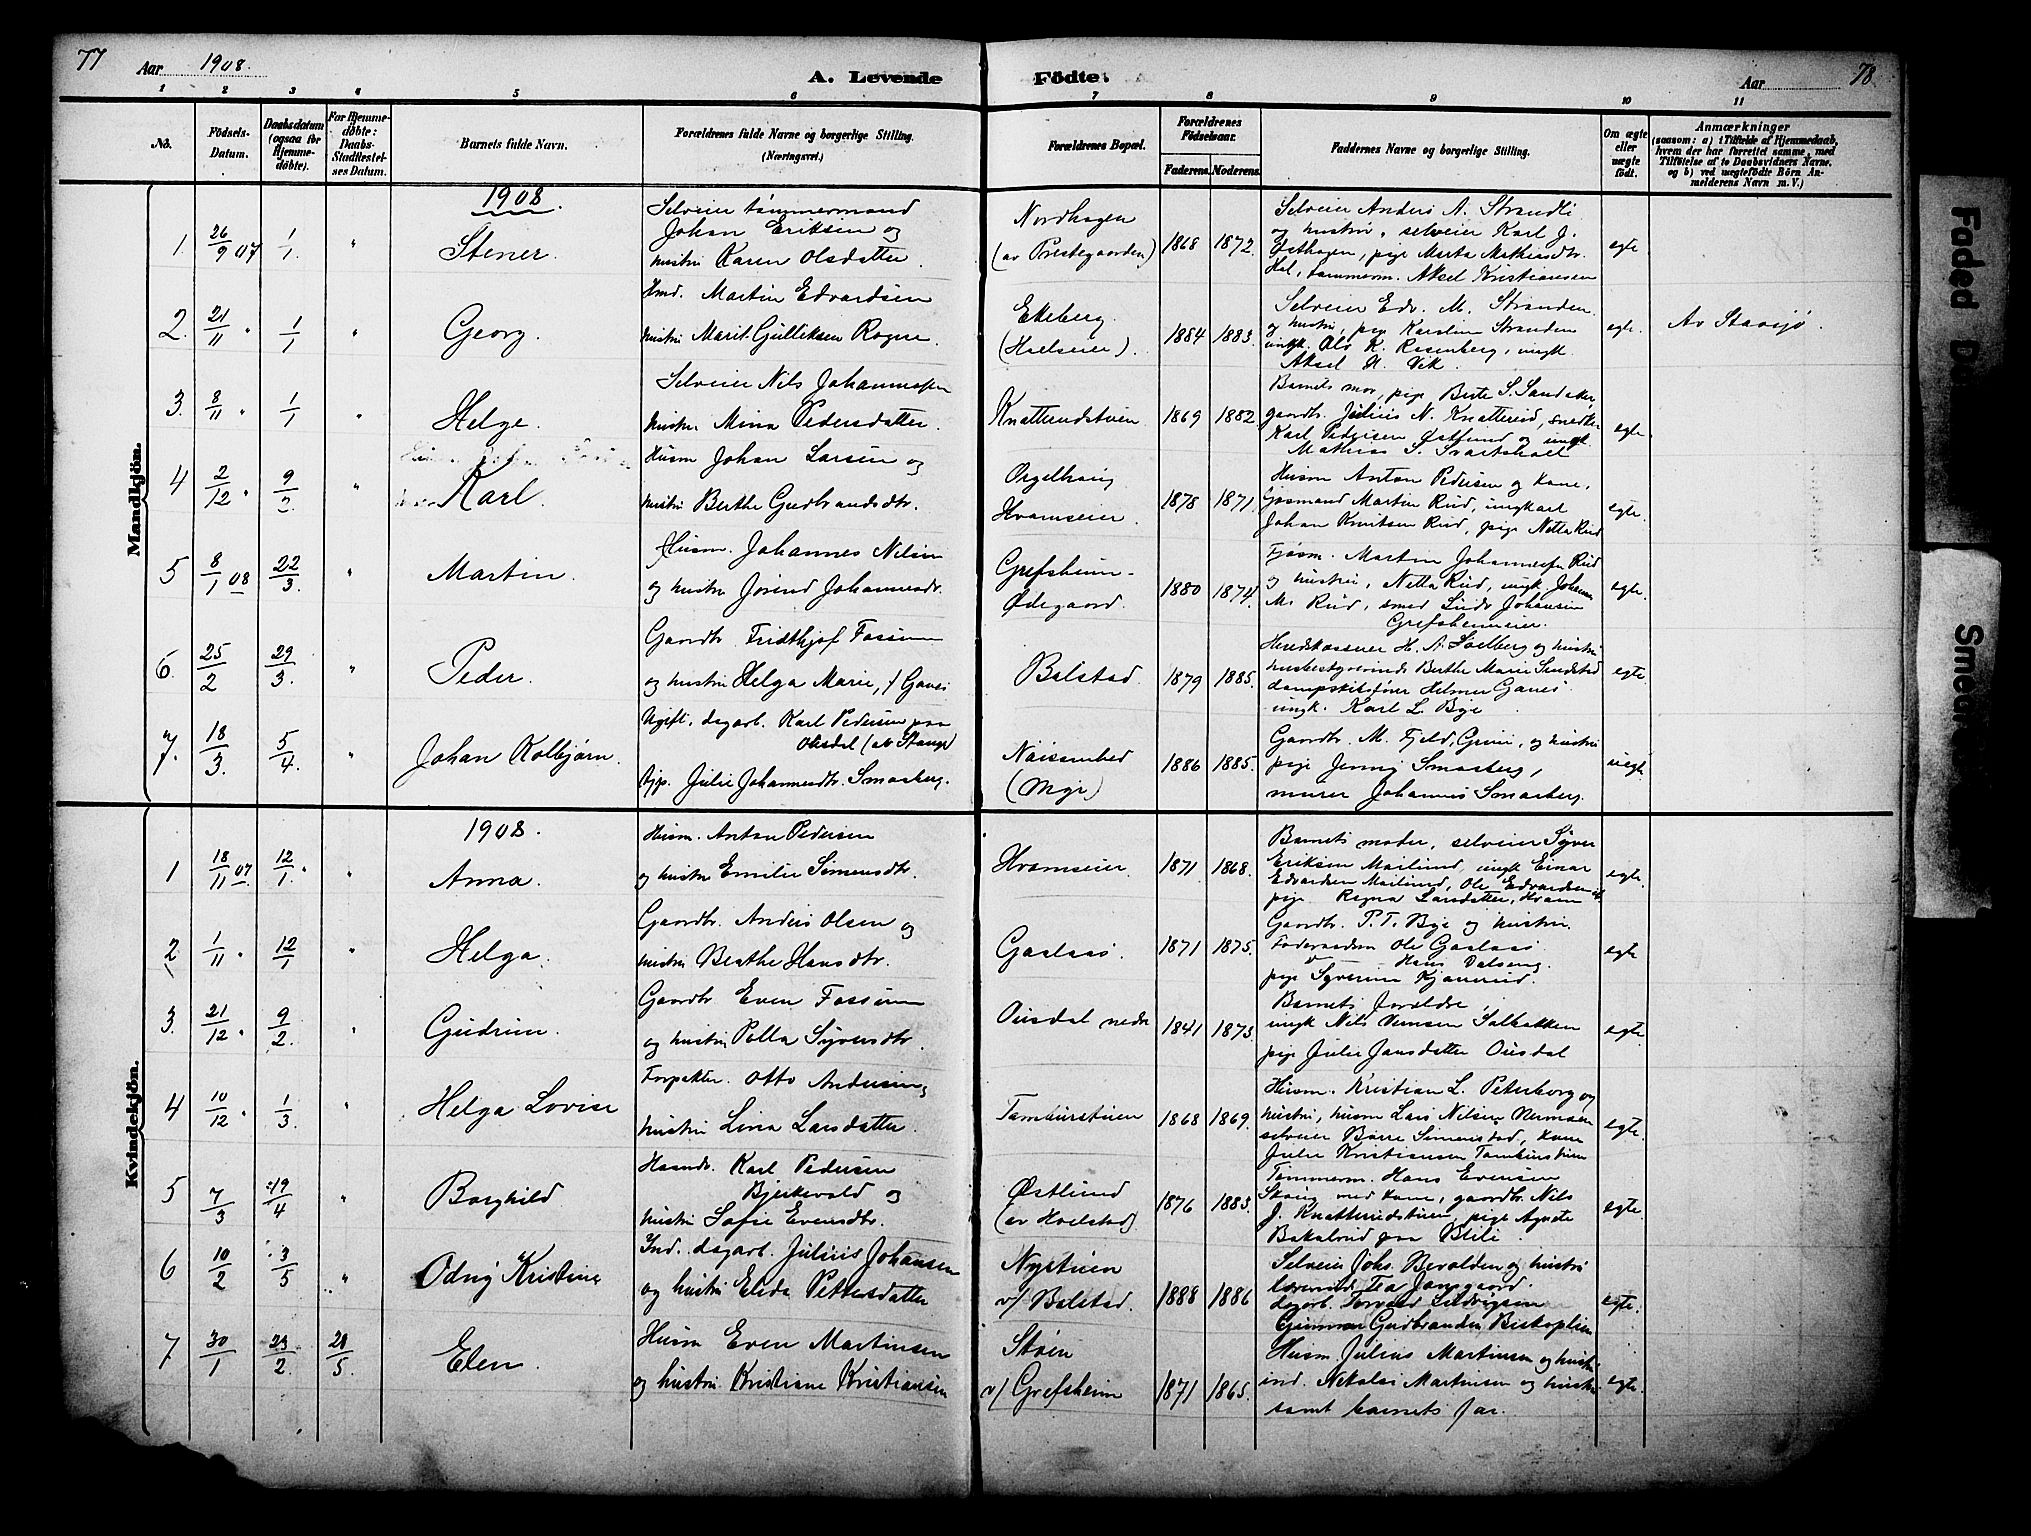 77
Aar 1908.
A. Levende
Födte.
Aar
78
1 2 3 4 5 6 7 8 9 10 11
No.
Födsels-Datum.
Daabsdatum (ogsaa for Hjemme-döbte).
For Hjemme-döbte: Daabs-Stadfæstel-ses Datum.
Barnets fulde Navn.
Forældrenes fulde Navne og borgerlige Stilling. (Næringsvei.)
Forældrenes Bopæl.
Forældrenes Födselsaar.
Faderens. Moderens.
Faddernes Navne og borgerlige Stilling.
Om ægte eller uægte födt.
Anmærkninger
(saasom: a) i Tilfælde af Hjemmedaab, hvem der har forrettet samme, med Tilföielse af to Daabsvidners Navne, og b) ved uægtefödte Börn An-melderens Navn m. V.)
Mandkjön.
1908.
1. 26/9 07 1/1 " Stener.
Selveier tömmermand
Johan Eriksen og
hustru Karen Olsdatter.
Nordhagen
(av Prestegaarden)
1868 1872.
Selveier Anders A. Strandli
og hustru, selveier Karl J.
Østhagen, pige Marta Mathiasdtr.
Hol, tømmerm. Aksel Kristiansen
egte
2. 21/11 " 1/1 " Georg.
Hmd. Martin Edvardsen
hustru Marit Gulliksen Rogne.
Ekeberg.
(Hoelseier).
1884 1883.
Selveier Edv. M. Stranden
og hustru, pige Karoline Stranden
ungk. Alv K. Rosenberg, ungk.
Aksel H. Vik.
egte.
Av Stavsjø.
3. 8/11 " 1/1 " Helge.
Selveier Nils Johannessen
hustru Mina Pedersdatter.
Knatterudstuen
1869 1882
Barnets mor, pige Berte S. Sandaker
gaardbr. Julius N. Knatterud, snedker
Karl Pedersen Østlund og ungk.
Mathias S.
egte.
4 2/12 " 9/2 " Karl.
Husm Johan Larsen og
hustru Berthe Gudbrandsdtr.
Orgelhaug
Hvamseier.
1878 1871.
Husm Anton Pedersen og kone,
Gjøsmand Martin Rud, ungkarl
Johan Knutsen Rud, pige Netta Rud
egte.
5 8/1 08 22/3 " Martin.
Husm. Johannes Nilsen
og hustru Jørind Johannesdr.
Grefsheim-
Ødegaard.
1880 1874.
Fjøsm. Martin Johannessen Rud
og hustru, Netta Rud, ungk Johannes
M. Rud, smed Ludv Johansen
Grefsheimeier.
egte.
6. 25/2 29/3. " Peder.
Gaardbr Fridthjof Fossum
og hustru Helga Marie, f Ganes
Balstad.
1879 1885.
Herredskasserer H. A. Solberg og hustru
husbestyrerinde Berthe Marie Sundstad
dampskibsfører Helmer Ganes
ungk. Karl L. Bye.
egte.
7. 18/3. 5/4. " Johan Kolbjørn.
Ugift, dagarb. Karl Pedersen paa
Ousdal (av Stange)
Tjp. Julie Johannesdtr. Smaaberg.
Naisambed
(Myr)
1886 1885.
Gaardbr. M. Fjeld, Grini, og hustru
pige Jenny Smaaberg,
murer Johannes Smaaberg.
uegte
Kvindekjön.
1908.
1 18/11 07. 12/1. " Anna.
Husm. Anton Pedersen
og hustru Emilie Simensdtr.
Hvamseier.
1871 1868.
Barnets moder, selveier Syver
Eriksen Mailund, ungk Einar
Edvardsen Mailund, Ole Edvardsen
pige Ragna Larsdatter, Hvam
egte.
2 1/11 " 12/1 " Helga.
Gaardbr. Anders Olsen og
hustru Beathe Hansdtr.
Gaalaas.
1871 1875.
Gaardbr. P. T. Bye og hustru
Føderaadsm Ole Gaalaas.
" Hans Dalseng.
pige Syverine Kjønerud.
egte
3. 21/12 " 9/2. " Gudrun.
Gaardbr Even Fossum
og hustru Pella Syversdtr.
Ousdal nedre
1841 1873
Barnets foreldre,
ungk Nils Nilsen Solbakken
pige Julie Jansdatter Ousdal
egte
4 10/12 " 1/3 " Helga Lovise
Forpakter. Otto Andersen og
hustru Lina Larsdatter.
Tamburstuen
1868 1869.
Husm. Kristian L. Peterborg og
hustru, husm Lars Nilsen
selveier Børre Simenstad, kone
Julie Kristiansen Tamburstuen
egte.
5 7/3 19/4 " Borghild
Haandv. Karl Pedersen
Bjerkevold og
hustru Sofie Evensdtr.
Østlund
(av Hoelstad).
1876 1883.
Tømmerm. Hans Evensen
Skaug med kone, gaardbr. Nils
J. Knatterudstuen, pige Agnete
Bakalrud paa Blili.
egte.
6 10/2 3/5 " Odny Kristine
Ind. dagarb. Julius Johansen
og hustru Elida Pettersdatter
Nystuen
v/ Balstad.
1888 1886
Selveier Johs. Bevolden og hustru
lærerinde Tea Jønsgaard.
dagarb. Torvald Ludvigsen
Gunnar Gudbrandsen Biskoplien
egte.
7 30/1 23/2. 28/5 Elen.
Husm Even Martinsen
og hustru Kristiane Kristiansen
Støen
v/ Grefsheim
1871 1865.
Husm. Julius Martinsen og hustru
ind. Nikolai Martinsen og hustru
samt barnets far.
egte.
Faded